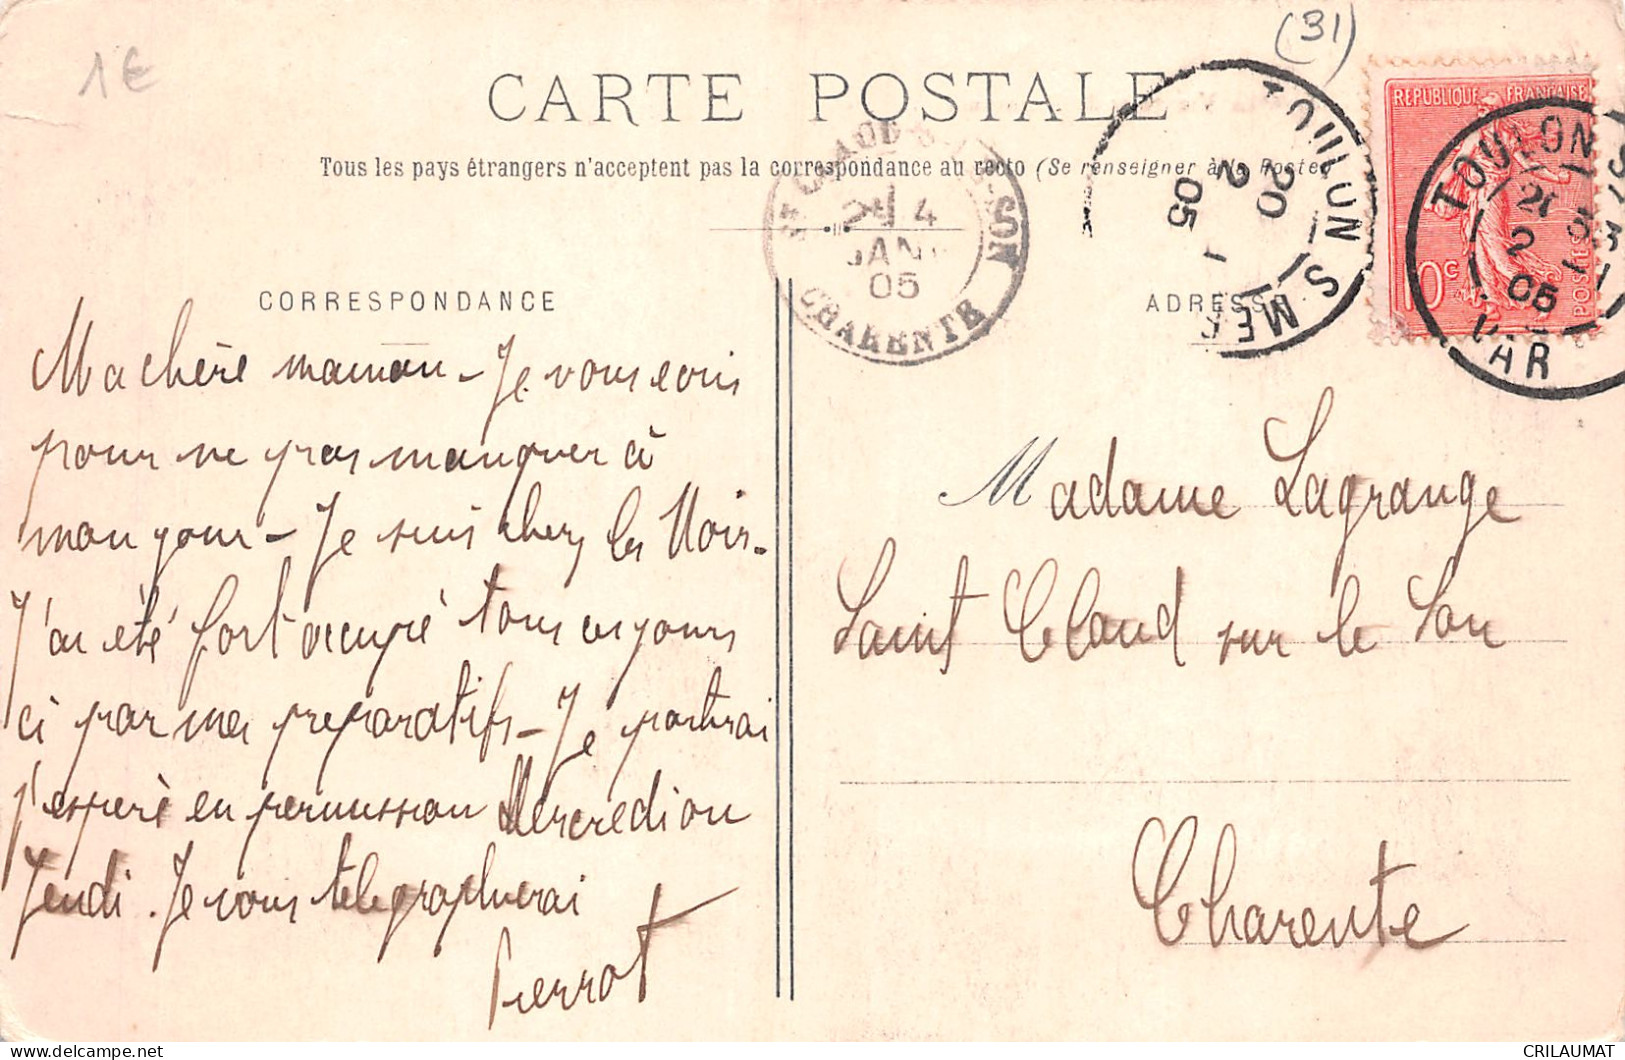 1€
(31)
CARTE POSTALE
Tous les pays étrangers n'acceptent pas la correspondance au recto (Se renseigner à la Poste)
CORRESPONDANCE
Ma chère maman - Je vous écris
pour ne pas manquer à
mon jour - Je suis chez les Noir.
J'ai été fort occupé tous ces jours
ci par mes préparatifs - Je partirai
j'espère en permission Mercredi ou
Jeudi. Je vous télégraphierai
Pierrot
ADRESSE
Madame Lagrange
Saint Claud sur le Son
Charente
ST CLAUD S. LE SON
4
JANV
05
CHARENTE
TOULON S MER
20
2
05
REPUBLIQUE FRANÇAISE
10c
POSTES
TOULON S
2
05
VAR
CRILAUMAT